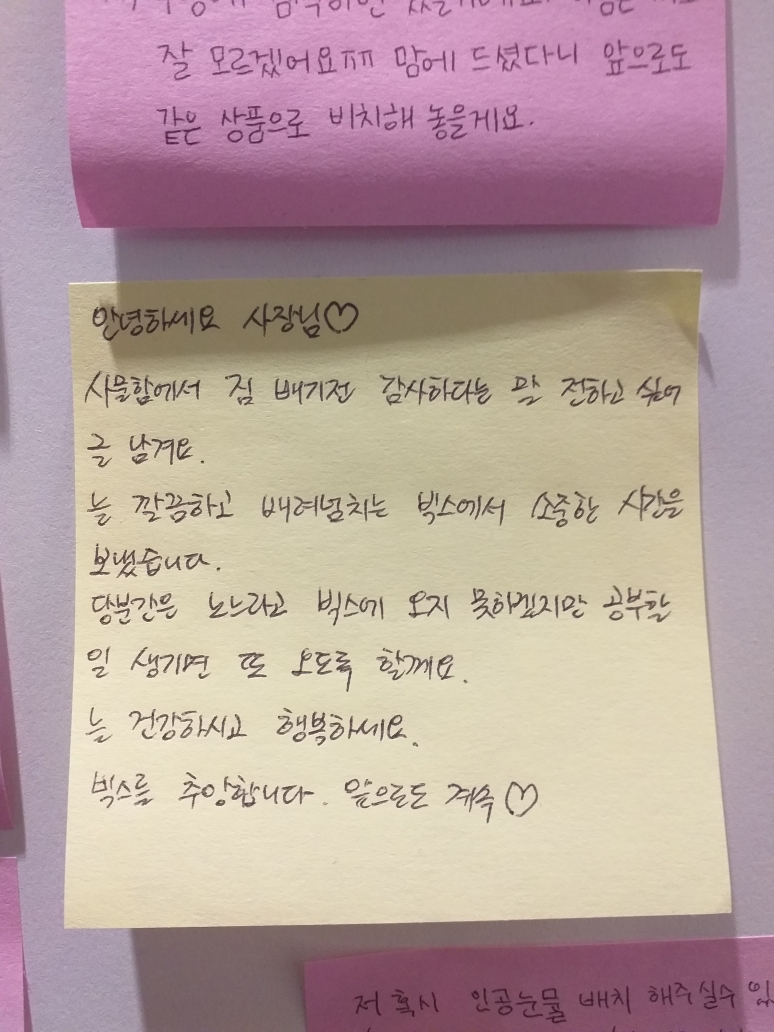 잘 모르겠어요ㅠㅠ 맘에 드셨다니 앞으로도
같은 상품으로 비치해 놓을게요.
안녕하세요 사장님♡
사물함에서 짐 빼기전 감사하다는 말 전하고 싶어
글 남겨요.
늘 깔끔하고 배려넘치는 빅스에서 소중한 시간을
보냈습니다.
당분간은 노느라고 빅스에 오지 못하겠지만 공부할
일 생기면 또 오도록 할께요.
늘 건강하시고 행복하세요.
빅스를 추앙합니다. 앞으로도 계속♡
저 혹시 인공눈물 배치 해주실수